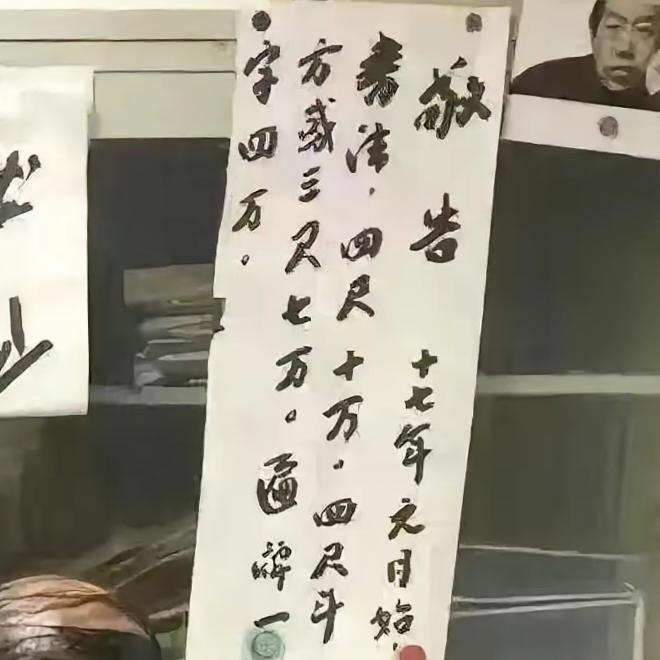 敬告 十七年元月始,
书法,四尺十万.四尺斗
方或三尺七万。匾牌一
字四万.